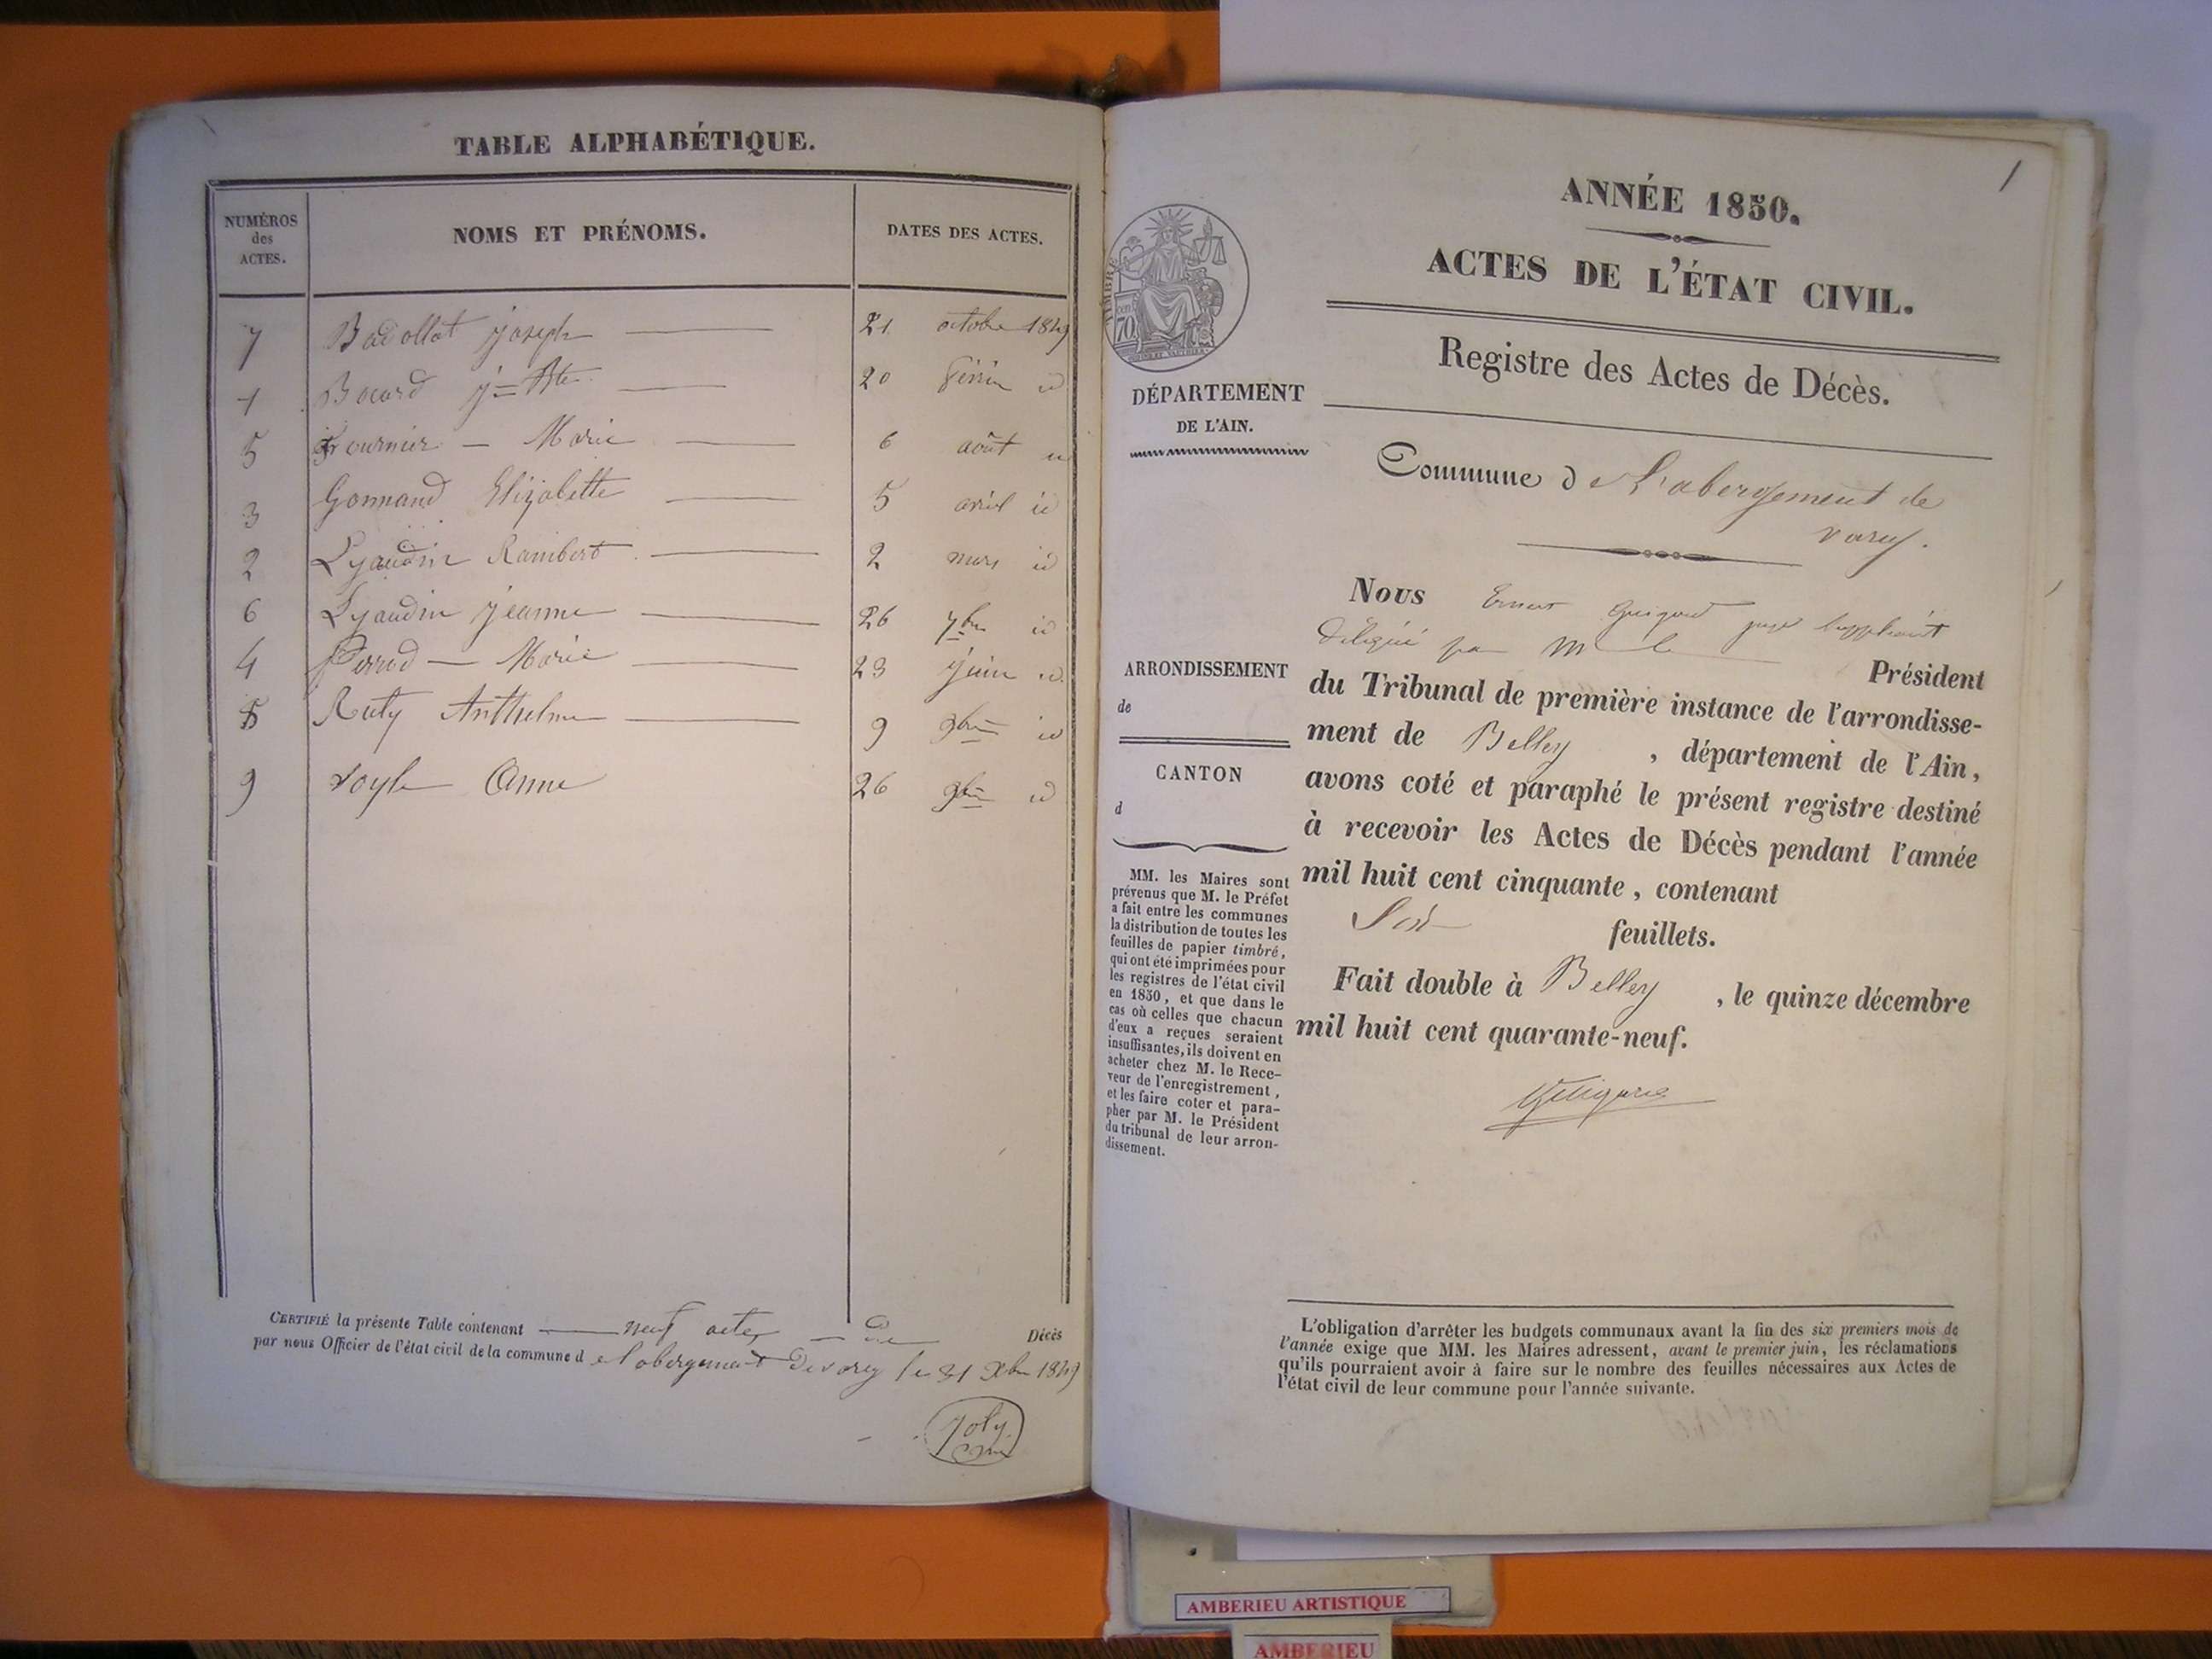 TABLE ALPHABÉTIQUE.
NUMÉROS des ACTES. NOMS ET PRÉNOMS. DATES DES ACTES.
7 Badollat joseph 21 octobre 1849
1 Bocard j=Bte 20 février id
5 Fournier - Marie 6 août id
3 Gonnand Elizabette 5 avril id
2 Lyaudin Rambert 2 mars id
6 Lyaudin jeanne 26 7bre id
4 Perrod - Marie 23 juin id
8 Ruty Anthelme 9 9bre id
9 Anne 26 9bre id
CERTIFIÉ la présente Table contenant neuf actes de Décès
par nous Officier de l'état civil de la commune de l'abergement de varey le 31 Xbre 1849
Joly
1
ANNÉE 1850.
ACTES DE L'ÉTAT CIVIL.
Registre des Actes de Décès.
TIMBRE
70
DÉPARTEMENT
DE L'AIN.
Commune de L'abergement de
varey.
Nous Ernest Guigard juge suppléant
délégué par M le Président
du Tribunal de première instance de l'arrondisse-
ment de Belley, département de l'Ain,
avons coté et paraphé le présent registre destiné
à recevoir les Actes de Décès pendant l'année
mil huit cent cinquante, contenant
feuillets.
Fait double à Belley, le quinze décembre
mil huit cent quarante-neuf.
ARRONDISSEMENT
de
CANTON
d
MM. les Maires sont
prévenus que M. le Préfet
a fait entre les communes
la distribution de toutes les
feuilles de papier timbré,
qui ont été imprimées pour
les registres de l'état civil
en 1850, et que dans le
cas où celles que chacun
d'eux a reçues seraient
insuffisantes, ils doivent en
acheter chez M. le Rece-
veur de l'enregistrement,
et les faire coter et para-
pher par M. le Président
du tribunal de leur arron-
dissement.
L'obligation d'arrêter les budgets communaux avant la fin des six premiers mois de
l'année exige que MM. les Maires adressent, avant le premier juin, les réclamations
qu'ils pourraient avoir à faire sur le nombre des feuilles nécessaires aux Actes de
l'état civil de leur commune pour l'année suivante.
AMBERIEU ARTISTIQUE
AMBERIEU